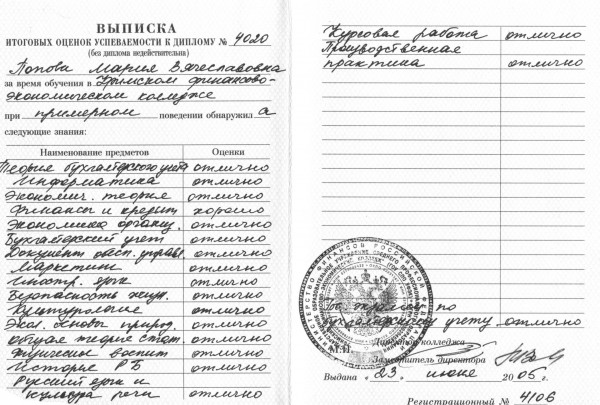 ВЫПИСКА
ИТОГОВЫХ ОЦЕНОК УСПЕВАЕМОСТИ К ДИПЛОМУ № 4020
(без диплома недействительна)
Попова Мария Вячеславовна
за время обучения в Крымском финансово-
экономическом колледже
при примерном поведении обнаружил а
следующие знания:
Наименование предметов Оценки
Теория бухгалтерского учета отлично
Информатика отлично
Экономич. теория отлично
Финансы и кредит хорошо
Экономика организ. отлично
Бухгалтерский учет отлично
Документ. обесп. управл. отлично
Маркетинг отлично
Иностр. язык отлично
Безопасность жизн. отлично
Культурология отлично
Экол. основы природ. отлично
Общая теория стат. отлично
Физическ. воспит. отлично
История РБ отлично
Русский язык и
культура речи отлично
Курсовая работа отлично
Производственная
практика отлично
по
бухгалтерскому учету отлично
М.П. Директор колледжа
Заместитель директора
Выдана « 23 » июня 2005 г.
Регистрационный № 4106